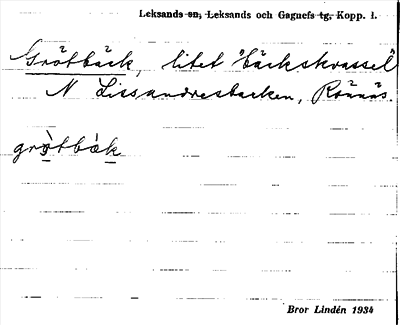 Leksands sn, Leksands och Gagnefs tg, Kopp. l.
Grötbäck, litet "bäckskvassel"
N Lissandresbacken, Rönnäs.
grötbäk
Bror Lindén 1934